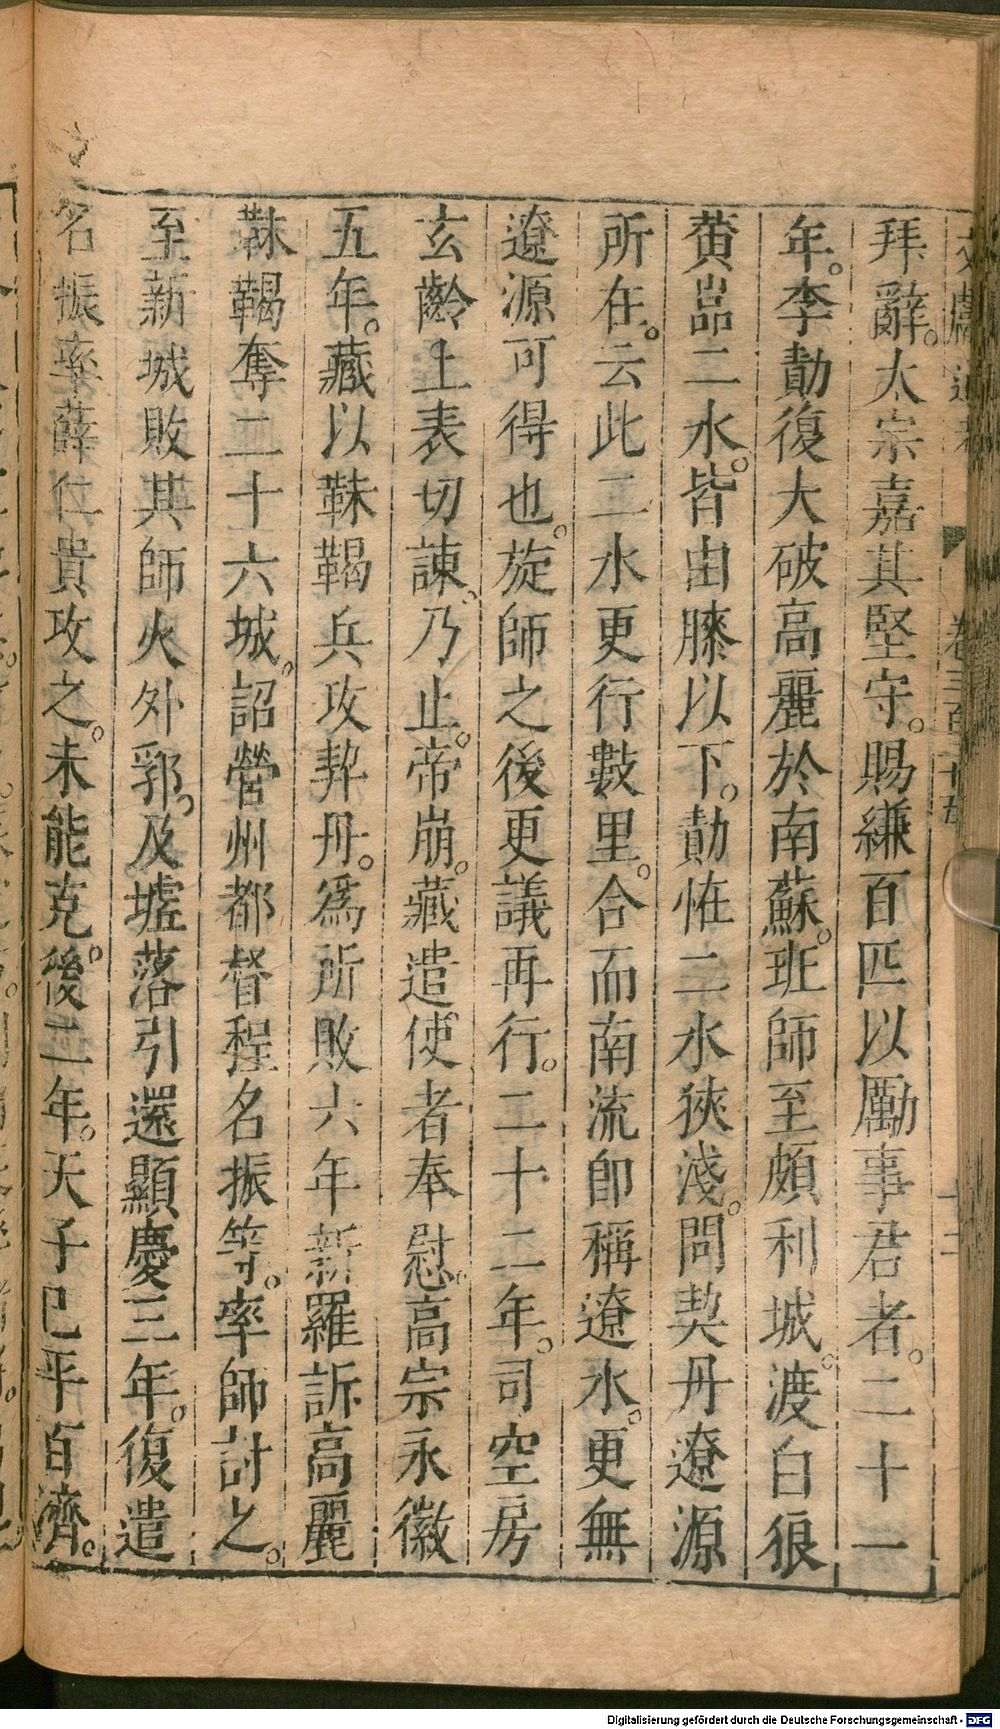 拜辭。太宗嘉其堅守。賜縑百匹以勵事君者。二十一
年。李勣復大破高麗於南蘇。班師至頗利城。渡白狼
黃嵓二水。皆由膝以下。勣怪二水狹淺。問契丹遼源
所在。云此二水更行數里。合而南流卽稱遼水。更無
遼源可得也。旋師之後更議再行。二十二年。司空房
玄齡上表切諫。乃止。帝崩。藏遣使者奉慰。高宗永徽
五年。藏以靺鞨兵攻契丹。爲所敗六年新羅訴高麗
靺鞨奪二十六城。詔營州都督程名振等。率師討之。
至新城敗其師火外郛。及墟落引還顯慶三年。復遣
名振率薛仁貴攻之。未能克。後二年。天子已平百濟。
卷三百二十五
十二
Digitalisierung gefördert durch die Deutsche Forschungsgemeinschaft - DFG